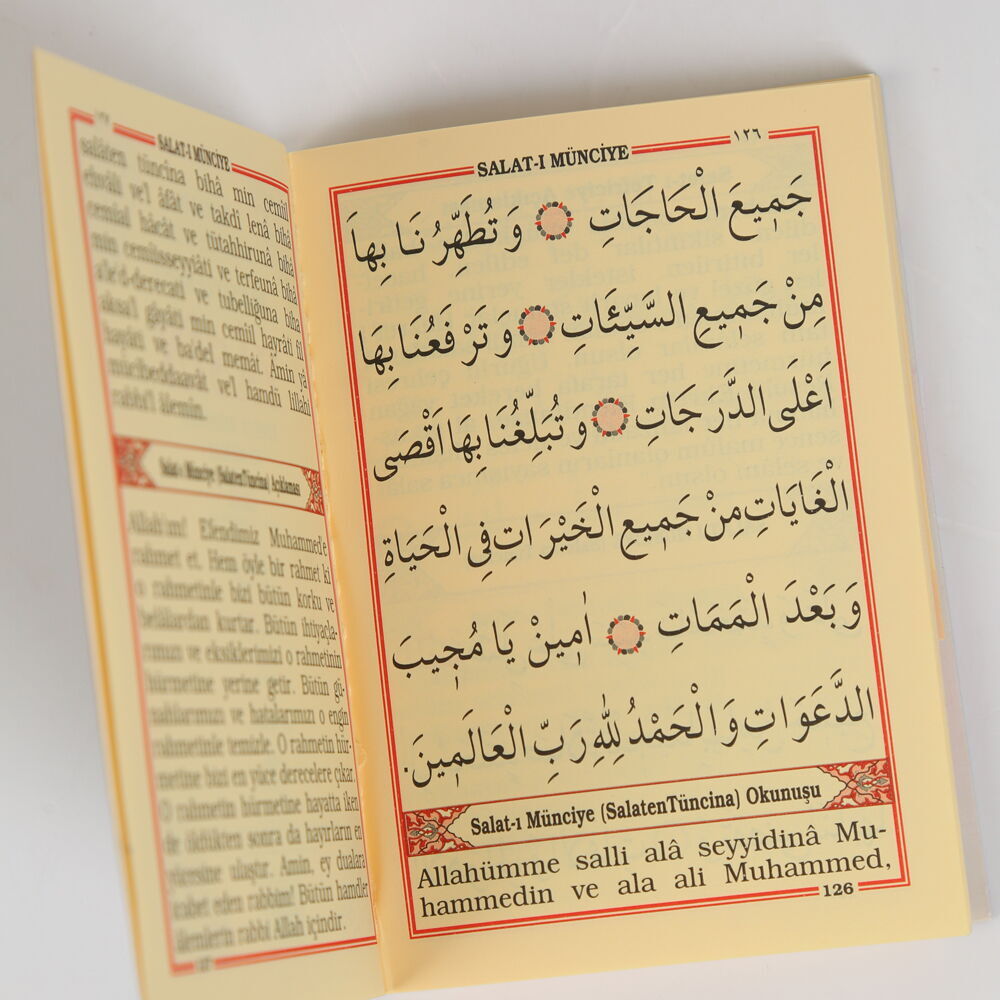 SALAT-I MÜNCİYE
١٢٦
جَمِيعَ الْحَاجَاتِ وَتُطَهِّرُنَا بِهَا
مِنْ جَمِيعِ السَّيِّئَاتِ وَتَرْفَعُنَا بِهَا
اَعْلَى الدَّرَجَاتِ وَتُبَلِّغُنَا بِهَا اَقْصَى
الْغَايَاتِ مِنْ جَمِيعِ الْخَيْرَاتِ فِى الْحَيَاةِ
وَبَعْدَ الْمَمَاتِ اٰمِينْ يَا مُجِيبَ
الدَّعَوَاتِ وَالْحَمْدُ لِلّٰهِ رَبِّ الْعَالَمِينَ.
Salat-ı Münciye (SalatenTüncina) Okunuşu
Allahümme salli alâ seyyidinâ Mu-
hammedin ve ala ali Muhammed,
126
SALAT-I MÜNCİYE
salâten tüncîna bihâ min cemiîl
ehvâli ve'l âfât ve takdî lenâ bihâ
cemîal hâcât ve tütahhirunâ bihâ
min cemîisseyyiâti ve terfeunâ bihâ
a'le'd-derecati ve tubelliğuna biha
aksa'l gâyâti min cemiîl hayrâti fîl
hayâti ve ba'del memât. Âmin yâ
mücîbeddaavât ve'l hamdü lillahi
rabbi'l âlemin.
Salat-ı Münciye (SalatenTüncina) Açıklaması
Allah'ım! Efendimiz Muhammed'e
rahmet et. Hem öyle bir rahmet ki
o rahmetinle bizi bütün korku ve
belâlardan kurtar. Bütün ihtiyaçla-
rımızı ve eksiklerimizi o rahmetinin
hürmetine yerine getir. Bütün gü-
nahlarımızı ve hatalarımızı o engin
rahmetinle temizle. O rahmetin hür-
metine bizi en yüce derecelere çıkar.
O rahmetin hürmetine hayatta iken
de öldükten sonra da hayırların en
yücesine ulaştır. Amin, ey dualara
icabet eden rabbim! Bütün hamdler
âlemlerin rabbi Allah içindir.